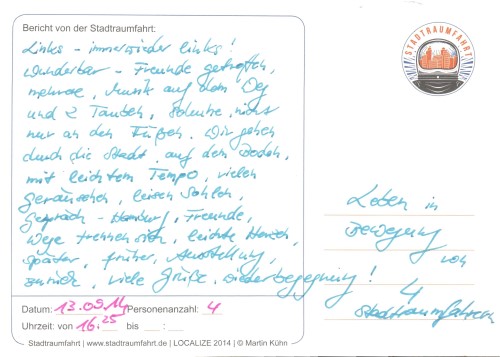 Bericht von der Stadtraumfahrt:
Links – immer wieder links!
Wunderbar – Freunde getroffen,
mehrere, Kunst auf dem Weg
und 2 Tauben, Schuhe, nichts
nur an den Füßen. Wir gehen
durch die Stadt, auf dem Boden,
mit leichtem Tempo, vielen
Geräuschen, leisen Sohlen,
Gespräch – Freunde,
Wege trennen sich, leichte
später, früher, Ausstellung,
zurück, viele Grüße, Wiederbegegnung!
Datum: 13.09.14 Personenanzahl: 4
Uhrzeit: von 16:25 bis __ : __
Stadtraumfahrt | www.stadtraumfahrt.de | LOCALIZE 2014 | © Martin Kühn
STADTRAUMFAHRT
Leben in
Bewegung
von
4
Stadtraumfahrern